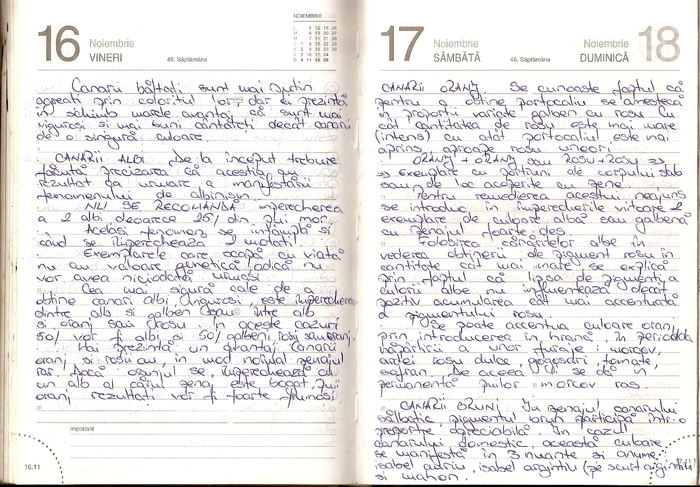 16 Noiembrie
VINERI
46. Săptămâna
NOIEMBRIE
Canarii băltați sunt mai puțin
apreciați prin coloritul lor, dar ei prezintă
în schimb marele avantaj că sunt mai
viguroși și mai buni cântăreți decât canarii
de o singură culoare.
CANARII ALBI De la început trebuie
făcută precizarea că aceștia au
rezultat ca urmare a manifestării
fenomenului de albinism.
NU SE RECOMANDĂ împerecherea
a 2 albi deoarece 25% din pui mor.
Același fenomen se întâmplă și
când se împerechează 2 motați.
Exemplarele care scapă cu viață
nu au valoare genetică (adică nu
vor avea niciodată urmași
Cea mai sigură cale de a
obține canari albi, viguroși, este împerecherea
dintre alb și galben sau între alb
și oranj sau roșu. În aceste cazuri
50% vor fi albi și 50% galbeni, roșii sau oranj.
Mai prezintă un avantaj canarii
oranj și roșu au, în mod normal penajul
rar. Dacă oranjul se împerechează cu
un alb al cărui penaj este bogat, puii
oranj rezultați vor fi foarte frumoși
important
16.11
17 Noiembrie
SÂMBĂTĂ
46. Săptămâna
Noiembrie 18
DUMINICĂ
CANARII ORANJ Se cunoaște faptul că
pentru a obține portocaliu se amestecă
în proporții variate galben cu roșu. Cu
cât cantitatea de roșu este mai mare
(intens) cu atât portocaliul este mai
aprins aproape roșu uneori.
ORANJ + ORANJ sau ROȘU + ROȘU =>
=> exemplare cu porțiuni ale corpului slab
sau de loc acoperite cu pene.
Pentru remedierea acestui neajuns
se introduc în împerecherile viitoare 2
exemplare de culoare albă sau galbenă
cu penajul foarte des.
Folosirea canarilor albe în
vederea obținerii de pigment roșu în
cantitate cât mai mare se explică
prin faptul că lipsa de pigmenți a
culorii albe nu influențează decât
pozitiv acumularea cât mai accentuată
a pigmentului roșu.
Se poate accentua culoare oranj
prin introducerea în hrană în perioada
năpârlirii a unor furaje: morcov,
ardei roșu dulce, gogoșari, tomate,
șofran. De aceea și se dă în
permanență puilor morcov ras.
CANARII BRUNI În penajul canarului
sălbatic, pigmentul brun participă într-o
proporție apreciabilă. În cazul
canarului domestic, această culoare
se manifestă în 3 nuanțe și anume,
isabel auriu, isabel argintiu (pe scurt argintiu)
și mahon.
17.11